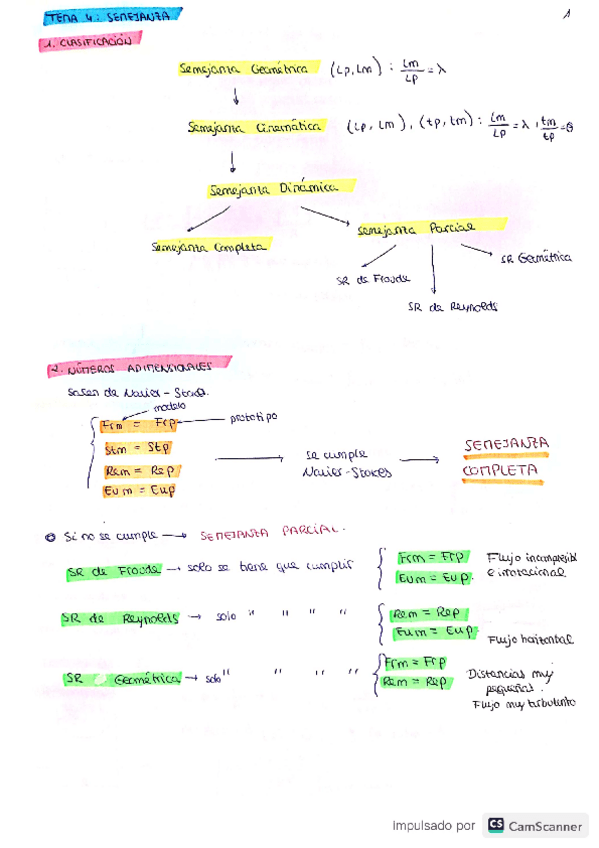 TEMA 4: SEMEJANZA
1
1. CLASIFICACIÓN
Semejanza Geométrica (Lp, Lm) : Lm/Lp = λ
Semejanza Cinemática (Lp, Lm), (tp, tm) : Lm/Lp = λ, tm/tp = θ
Semejanza Dinámica
Semejanza Completa
Semejanza Parcial
SR de Froude
SR de Reynolds
SR Geométrica
2. NÚMEROS ADIMENSIONALES
Salen de Navier-Stokes.
modelo
prototipo
Frm = Frp
Stm = Stp
Rem = Rep
Eum = Eup
se cumple
Navier-Stokes
SEMEJANZA
COMPLETA
Si no se cumple → SEMEJANZA PARCIAL.
SR de Froude → solo se tiene que cumplir
Frm = Frp
Eum = Eup.
Flujo incompresibl
e irrotacional
SR de Reynolds → solo " " " "
Rem = Rep
Eum = Eup
Flujo horizontal
SR Geométrica → solo " " " "
Frm = Frp
Rem = Rep
Distancias muy
pequeñas.
Flujo muy turbulento
Impulsado por CS CamScanner